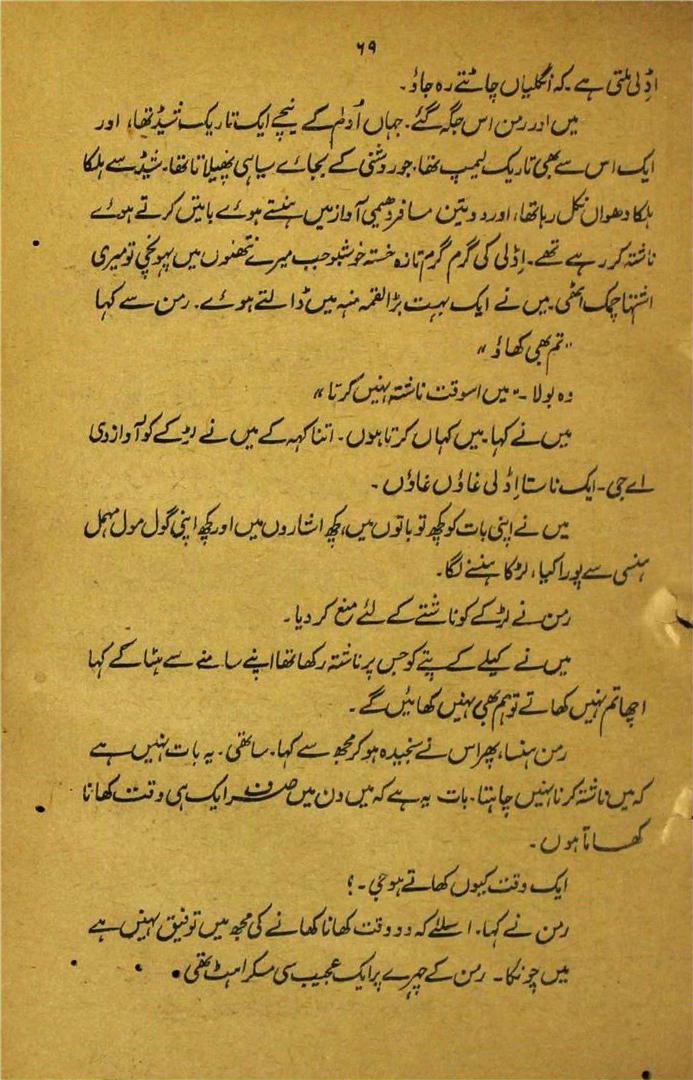 ۶۹
اِڈلی ملتی ہے۔ کہ انگلیاں چاٹتے رہ جاؤ۔
میں اور رمن اس جگہ گئے۔ جہاں اُدلم کے نیچے ایک تاریک شیڈ تھا، اور
ایک اس سے بھی تاریک لیمپ تھا۔ جو روشنی کے بجائے سیاہی پھیلاتا تھا۔ شیڈ سے ہلکا
ہلکا دھواں نکل رہا تھا، اور دو تین مسافر دھیمی آواز میں ہنستے ہوئے باتیں کرتے ہوئے
ناشتہ کر رہے تھے۔ اِڈلی کی گرم گرم تازہ خستہ خوشبو جب میرے نتھنوں میں پہونچی تو میری
اشتہا چمک اُٹھی۔ میں نے ایک بہت بڑا لقمہ منہ میں ڈالتے ہوئے۔ رمن سے کہا
"تم بھی کھاؤ"
وہ بولا۔ "میں اسوقت ناشتہ نہیں کرتا"
میں نے کہا۔ میں کہاں کرتا ہوں۔ اتنا کہہ کے میں نے لڑکے کو آواز دی
اے جی۔ ایک ناستا اِڈلی غاؤں غاؤں۔
میں نے اپنی بات کو کچھ تو باتوں میں، کچھ اشاروں میں اور کچھ اپنی گول مول مہمل
ہنسی سے پورا کیا، لڑکا ہنسنے لگا۔
رمن نے لڑکے کو ناشتے کے لئے منع کر دیا۔
میں نے کیلے کے پتے کو جس پر ناشتہ رکھا تھا اپنے سامنے سے ہٹا کے کہا
اچھا تم نہیں کھاتے تو ہم بھی نہیں کھائیں گے۔
رمن ہنسا، پھر اس نے سنجیدہ ہو کر مجھ سے کہا۔ ساتھی۔ یہ بات نہیں ہے
کہ میں ناشتہ کرنا نہیں چاہتا۔ بات یہ ہے کہ میں دن میں صرف ایک ہی وقت کھانا
کھاتا ہوں۔
ایک وقت کیوں کھاتے ہو جی۔؟
رمن نے کہا۔ اسلئے کہ دو وقت کھانا کھانے کی مجھ میں توفیق نہیں ہے
میں چونکا۔ رمن کے چہرے پر ایک عجیب سی مسکراہٹ تھی۔